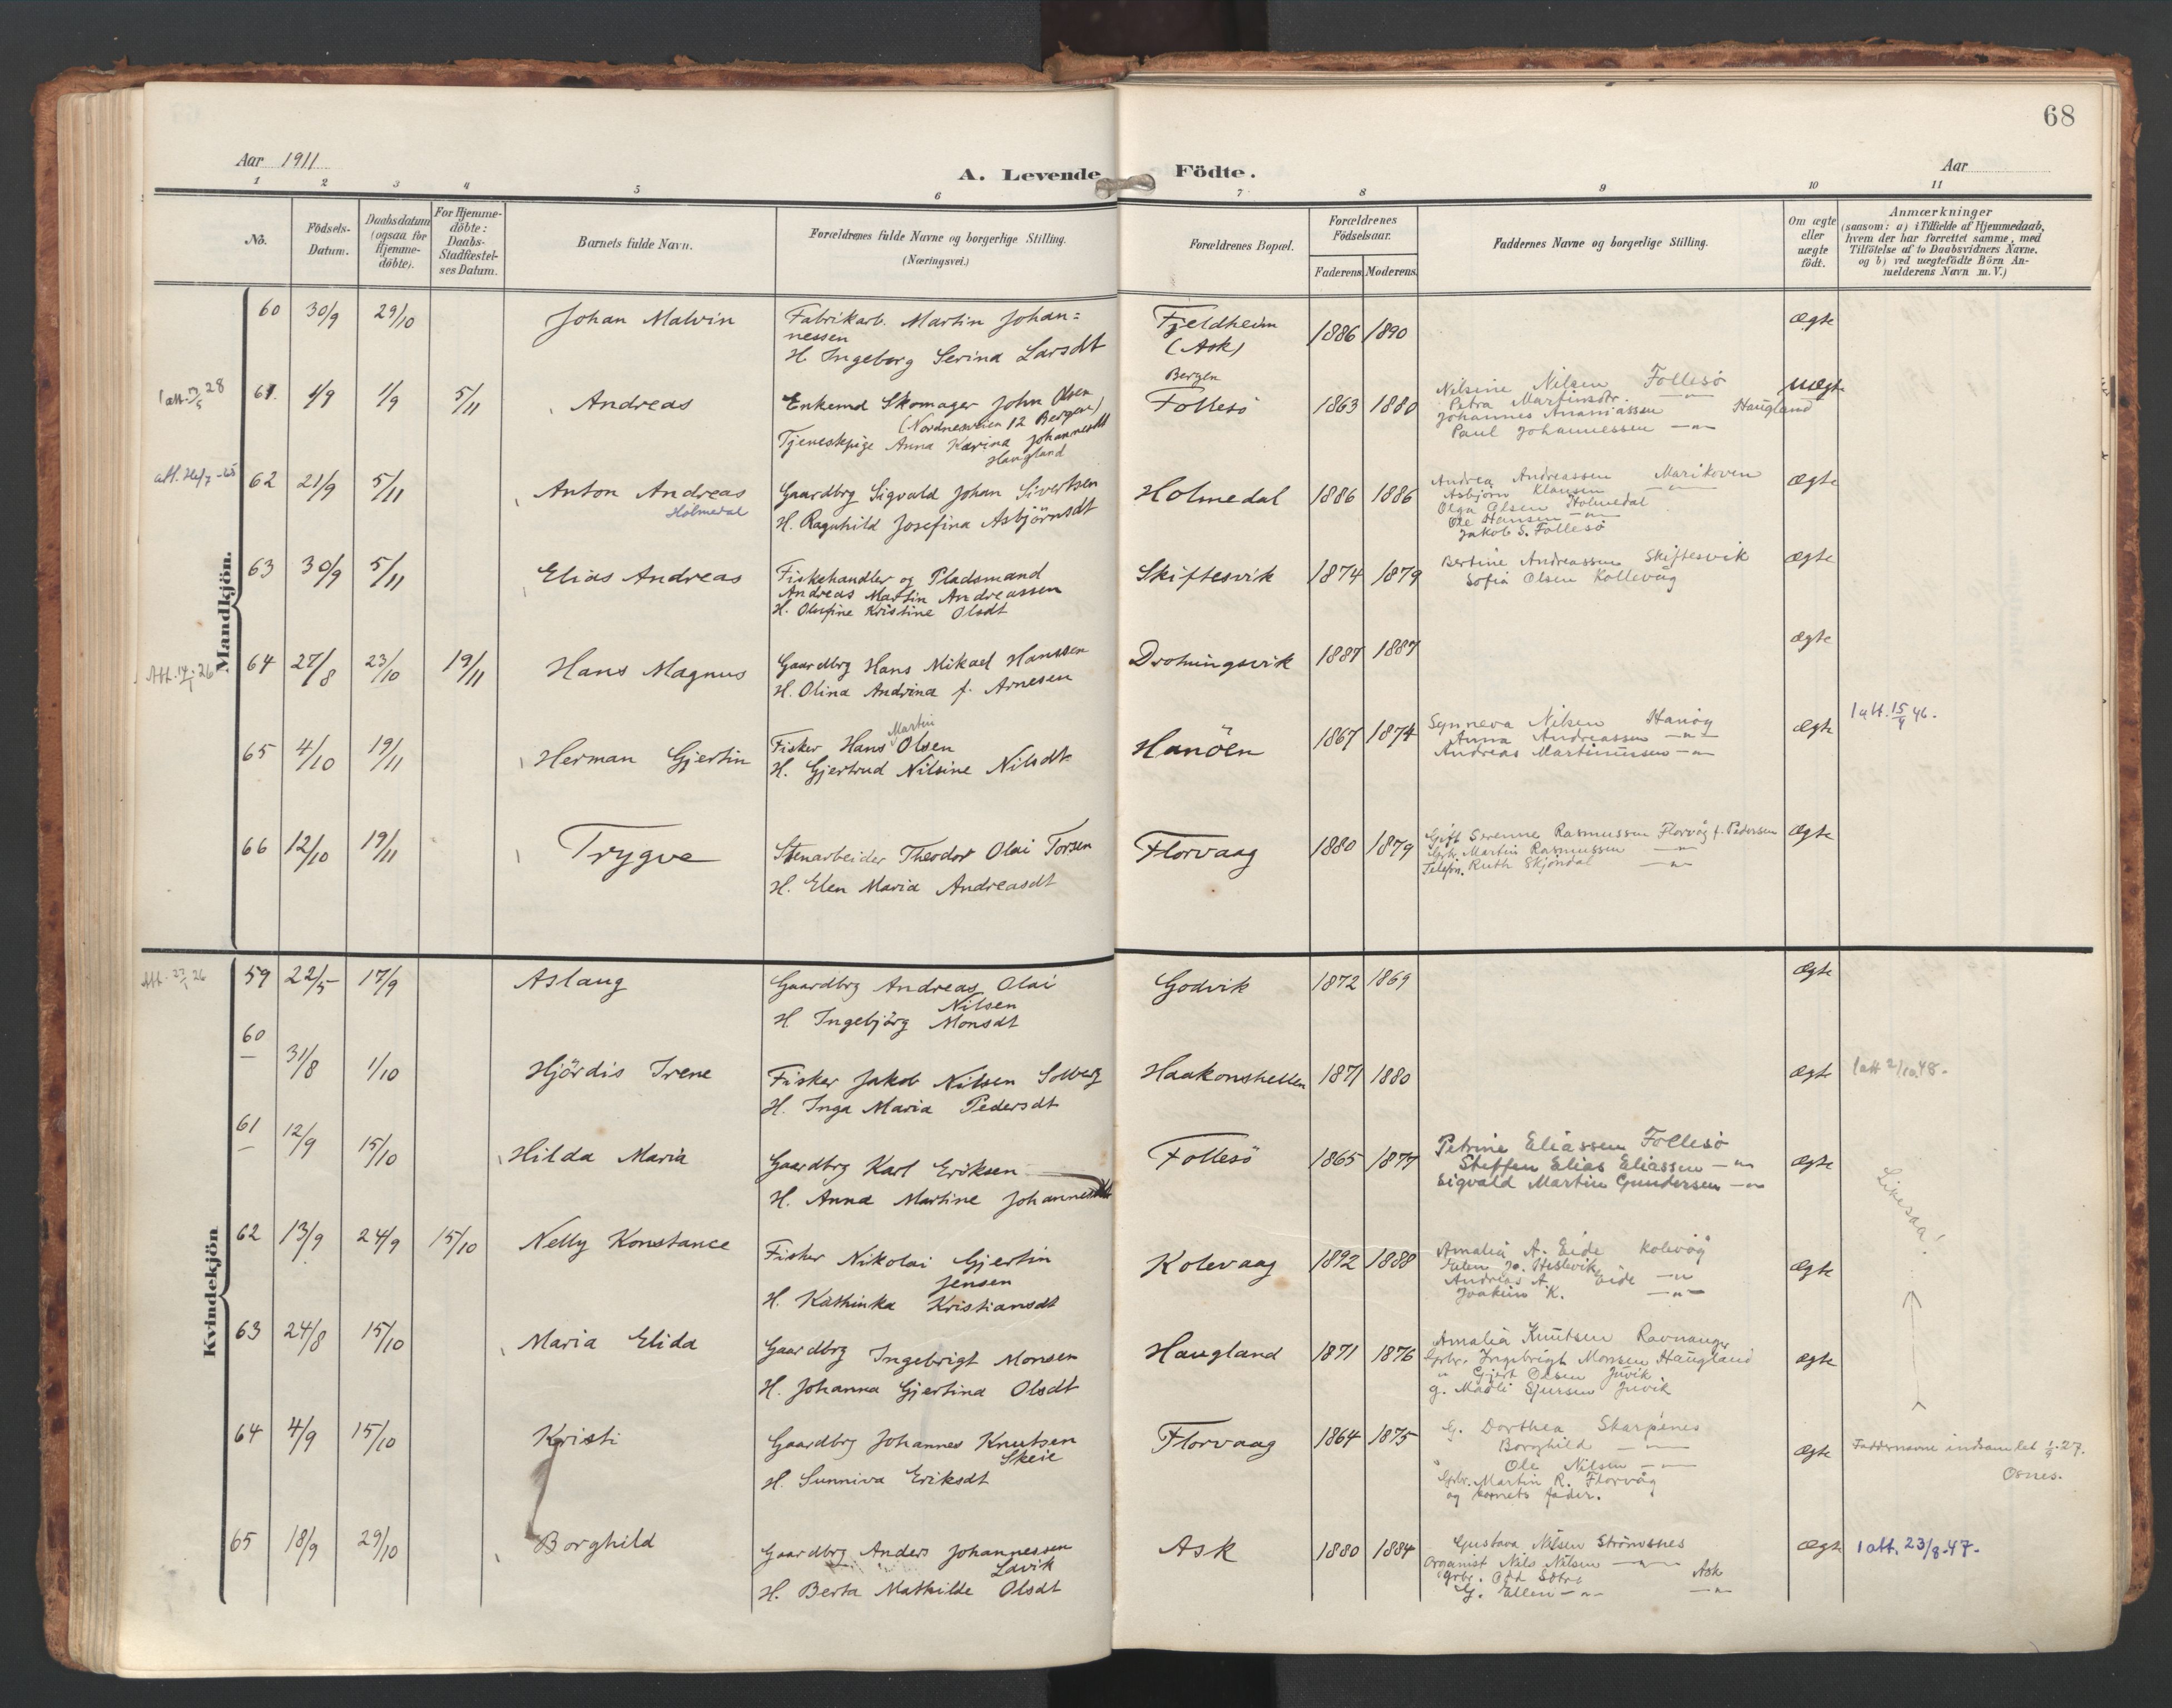 68
Aar 1911
A. Levende Födte.
Aar
1 2 3 4 5 6 7 8 9 10 11
No.
Födsels-Datum.
Daabsdatum (ogsaa for Hjemme-döbte).
For Hjemme-döbte: Daabs-Stadfæstel-ses Datum.
Barnets fulde Navn.
Forældrenes fulde Navne og borgerlige Stilling.
(Næringsvei.)
Forældrenes Bopæl.
Forældrenes Födselsaar.
Faderens. Moderens.
Faddernes Navne og borgerlige Stilling.
Om ægte eller uægte födt.
Anmærkninger
(saasom: a) i Tilfælde af Hjemmedaab,
hvem der har forrettet samme, med
Tilföielse af to Daabsvidners Navne.
og b) ved uægtefödte Börn An-
melderens Navn m. V.)
Mandkjön.
60 30/9 29/10 Johan Malvin Fabrikarb. Martin Johan=
nessen
H. Ingeborg Serina Larsdt
Fjeldheim
(Ask)
1886 1890 ægte
1 att. 28
61. 4/9 1/9 5/11 Andreas Enkemd Skomager John Olsen
(Nordnesveien 12 Bergen)
Tjenestepige Anna Karina Johannesdt
Haugland
Bergen
Follesö
1863 1880
Nilsine Nilsen Follesö
Petra Martinsdtr. -"-
Johannes Ananiassen Haugland
Paul Johannessen -"-
uægte
att. 7-65
62 21/9 5/11 Anton Andreas
Holmedal
Gaardbrg Sigvald Johan Sivertsen
H. Ragnhild Josefina Asbjörnsdt
Holmedal 1886 1886
Andrea Andreassen Marikoven
Asbjörn Klausen -"-
Olga Olsen Holmedal
Ole Hansen -"-
Jakob S. Follesö
ægte
63 30/9 5/11 Elias Andreas Fiskehandler og Pladsmand
Andreas Martin Andreassen
H. Olufine Kristine Olsdt
Skiftesvik 1874 1879
Bertine Andreassen Skiftesvik
Sofia Olsen Kollevåg
ægte
Att. 14/1-26
64 27/8 23/10 19/11 Hans Magnus Gaardbrg Hans Mikael Hanssen
H. Olina Andrina f. Arnesen
Drotningsvik 1887 1887 ægte
65 4/10 19/11 Herman Gjertin Fisker Hans Martin Olsen
H. Gjertrud Nilsine Nilsdt
Hanöen 1867 1874
Synneva Nilsen Hanöy
Anna Andreassen -"-
Andreas Martinussen -"-
ægte
1 att. 15/4 46.
66 12/10 19/11 Trygve Stenarbeider Theodor Olai Torsen
H. Elen Maria Andreasdt
Florvaag 1880 1879
Gift Serenne Rasmussen Florvåg f. Pedersen
Gbr. Martin Rasmussen -"-
Telefon. Ruth Skjöndal -"-
ægte
Kvindekjön
Att. 23/1 26
59 22/5 17/9 Aslaug Gaardbrg Andreas Olai
Nilsen
H. Ingebjörg Monsdt
Godvik 1872 1869 ægte
60 31/8 1/10 Hjördis Irene Fisker Jakob Nilsen Solberg
H. Inga Maria Pedersdt
Haakonshellen 1871 1880 ægte
1 att 2/10.48.
61 12/9 15/10 Hilda Maria Gaardbrg Karl Eriksen
H. Anna Martine Johannesdt
Follesö 1865 1877
Petrine Eliassen Follesö
Steffen Elias Eliassen -"-
Sigvald Martin Gundersen -"-
ægte
Likesaa!
62 13/9 24/9 15/10 Nelly Konstance Fisker Nikolai Gjertin
Jensen
H. Kathinka Kristiansdt
Kolevaag 1892 1888
Amalia A. Eide Kolevåg
Elen Jo. Hestevik
Andreas A. Eide -"-
Joakim K. -"-
ægte
63 24/8 15/10 Maria Elida Gaardbrg Ingebrigt Monsen
H. Johanna Gjertina Olsdt
Haugland 1871 1876
Amalia Knutsen Ravnanger
Gbr. Ingebrigt Monsen Haugland
" Gjert Olsen Juvik
g. Madli Sjursen Juvik
ægte
64 4/9 15/10 Kristi Gaardbrg Johannes Knutsen
Skeie
H. Sunniva Eriksdt
Florvaag 1864 1875
G. Dorthea Skarpenes
Borghild -"-
Ole Nilsen -"-
Gbr. Martin R. Florvåg
og barnets fader.
ægte
Faddernavne indsamlet 1/9.27.
Osnes.
65 18/9 29/10 Borghild Gaardbrg Anders Johannessen
Lavik
H. Berta Mathilde Olsdt
Ask 1880 1884
Gustava Nilsen Strömsnes
Organist Nils Nilsen -"-
grbr. Odd Sötre Ask
G. Ellen -"- -"-
ægte
1 att. 23/8-47-